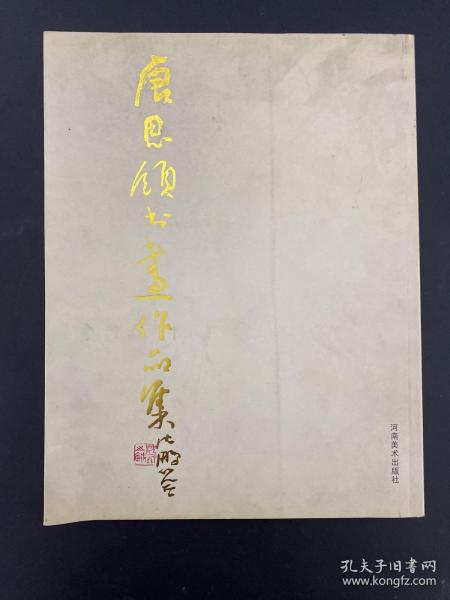 唐思颂书画作品集
沈鹏签
河南美术出版社
孔夫子旧书网
www.kongfz.com